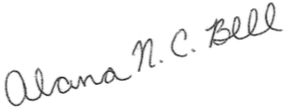 Alana N. C. Bell